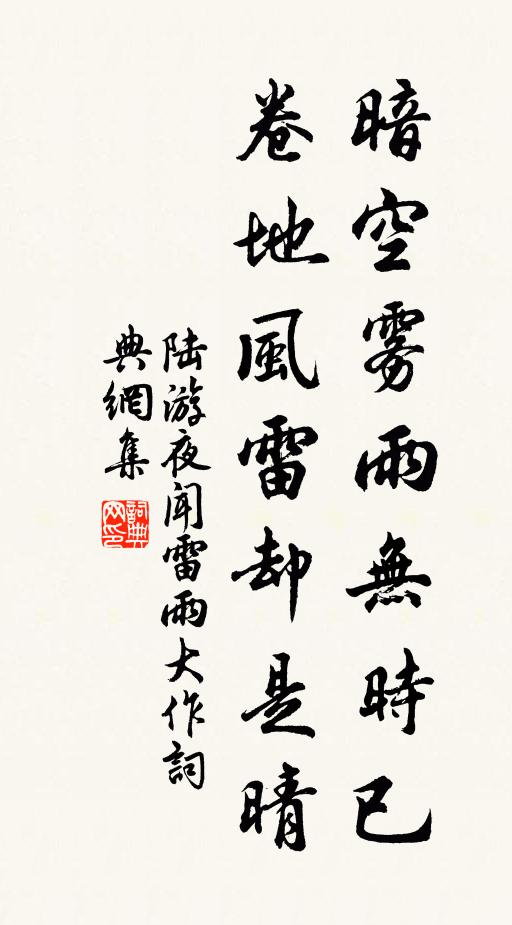 暗空雾雨無時已
卷地風雷却是晴
陆游夜闻雷雨大作詞
典網集
詞典
网印